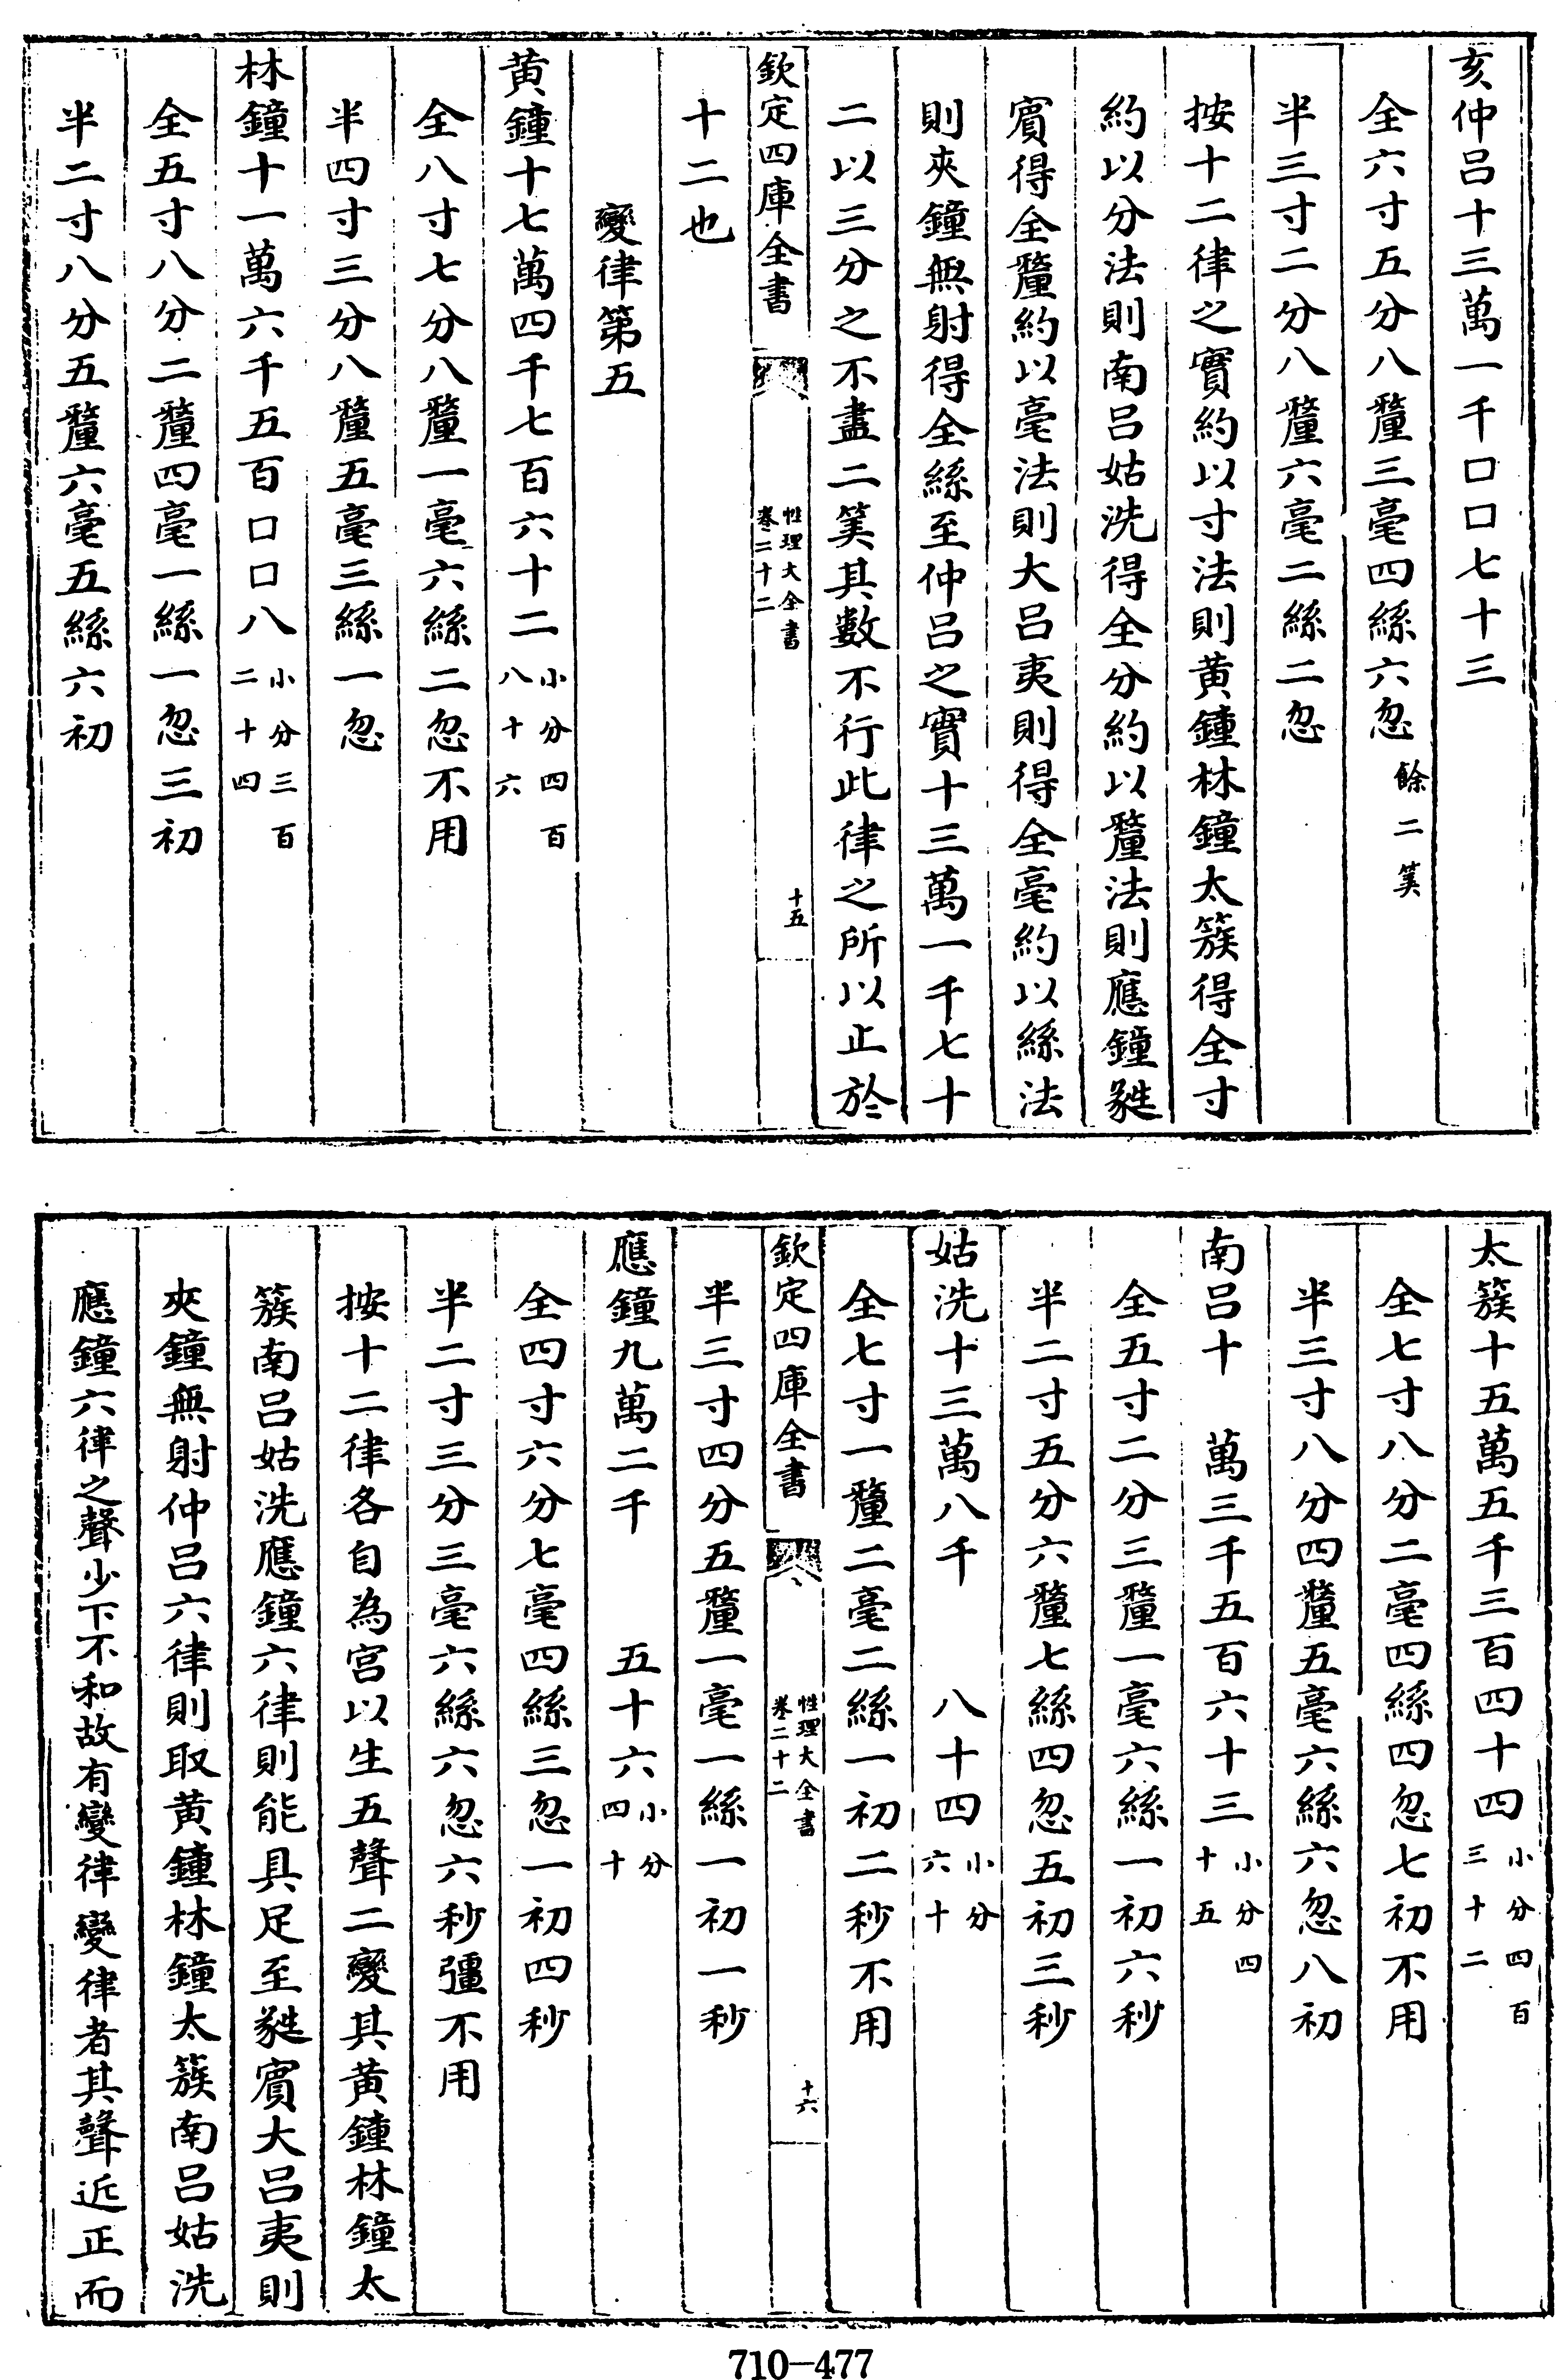 亥仲呂十三萬一千口口七十三
全六寸五分八釐三毫四絲六忽餘二筭
半三寸二分八釐六毫二絲二忽
按十二律之實約以寸法則黄鍾林鐘太簇得全寸
約以分法則南呂姑洗得全分約以釐法則應鐘蕤
賓得全釐約以毫法則大呂夷則得全毫約以絲法
則夾鐘無射得全絲至仲呂之實十三萬一千七十
二以三分之不盡二筭其數不行此律之所以止於
欽定四庫全書
性理大全書
卷二十二
十五
十二也
變律第五
黄鍾十七萬四千七百六十二小分四百八十六
全八寸七分八釐一毫六絲二忽不用
半四寸三分八釐五毫三絲一忽
林鐘十一萬六千五百口口八小分三百二十四
全五寸八分二釐四毫一絲一忽三初
半二寸八分五釐六毫五絲六初
太簇十五萬五千三百四十四小分四百三十二
全七寸八分二毫四絲四忽七初不用
半三寸八分四釐五毫六絲六忽八初
南呂十 萬三千五百六十三小分四十五
全五寸二分三釐一毫六絲一初六秒
半二寸五分六釐七絲四忽五初三秒
姑洗十三萬八千 八十四小分六十
全七寸一釐二毫二絲一初二秒不用
欽定四庫全書
性理大全書
卷二十二
十六
半三寸四分五釐一毫一絲一初一秒
應鐘九萬二千 五十六小分四十
全四寸六分七毫四絲三忽一初四秒
半二寸三分三毫六絲六忽六秒彊不用
按十二律各自為宮以生五聲二變其黄鍾林鐘太
簇南呂姑洗應鐘六律則能具足至蕤賓大呂夷則
夾鐘無射仲呂六律則取黄鍾林鐘太簇南呂姑洗
應鐘六律之聲少下不和故有變律變律者其聲近正而
710-477